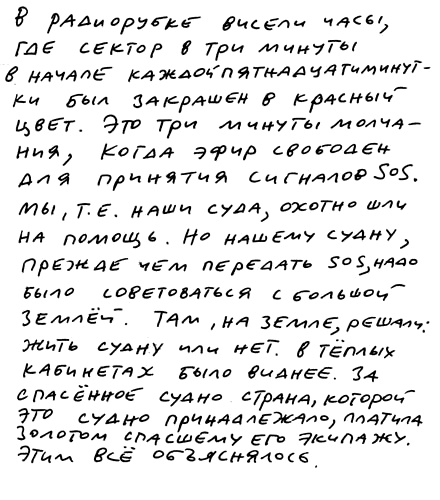 В РАДИОРУБКЕ ВИСЕЛИ ЧАСЫ,
ГДЕ СЕКТОР В ТРИ МИНУТЫ
В НАЧАЛЕ КАЖДОЙ ПЯТНАДЦАТИМИНУТ-
КИ БЫЛ ЗАКРАШЕН В КРАСНЫЙ
ЦВЕТ. ЭТО ТРИ МИНУТЫ МОЛЧА-
НИЯ, КОГДА ЭФИР СВОБОДЕН
ДЛЯ ПРИНЯТИЯ СИГНАЛОВ SOS.
МЫ, Т.Е. НАШИ СУДА, ОХОТНО ШЛИ
НА ПОМОЩЬ. НО НАШЕМУ СУДНУ,
ПРЕЖДЕ ЧЕМ ПЕРЕДАТЬ SOS, НАДО
БЫЛО СОВЕТОВАТЬСЯ С БОЛЬШОЙ
ЗЕМЛЁЙ. ТАМ, НА ЗЕМЛЕ, РЕШАЛИ:
ЖИТЬ СУДНУ ИЛИ НЕТ. В ТЁПЛЫХ
КАБИНЕТАХ БЫЛО ВИДНЕЕ. ЗА
СПАСЁННОЕ СУДНО СТРАНА, КОТОРОЙ
ЭТО СУДНО ПРИНАДЛЕЖАЛО, ПЛАТИЛА
ЗОЛОТОМ СПАСШЕМУ ЕГО ЭКИПАЖУ.
ЭТИМ ВСЁ ОБЪЯСНЯЛОСЬ.